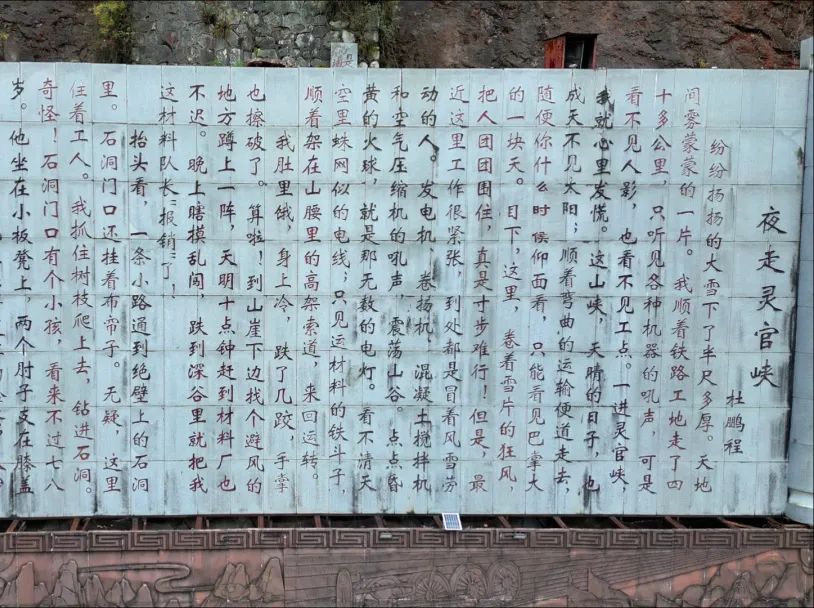 夜走灵官峡
杜鹏程
纷纷扬扬的大雪下了半尺多厚。天地
间雾蒙蒙的一片。我顺着铁路工地走了四
十多公里，只听见各种机器的吼声，可是
看不见人影，也看不见工点。一进灵官峡，
我就心里发慌。这山峡，天晴的日子，也
成天不见太阳；顺着弯曲的运输便道走去，
随便你什么时候仰面看，只能看见巴掌大
的一块天。目下，这里，卷着雪片的狂风，
把人团团围住，真是寸步难行！但是，最
近这里工作很紧张，到处都是冒着风雪劳
动的人。发电机、卷扬机、混凝土搅拌机
和空气压缩机的吼声，震荡山谷。点点昏
黄的火球，就是那无数的电灯。看不清天
空里蛛网似的电线；只见运材料的铁斗子，
顺着架在山腰里的高架索道，来回运转。
我肚里饿，身上冷，跌了几跤，手掌
也擦破了。算啦！到山崖下边找个避风的
地方蹲上一阵，天明十点钟赶到材料厂也
不迟。晚上瞎摸乱闯，跌到深谷里就把我
这材料队长“报销”了！
抬头看，一条小路通到绝壁上的石洞
里。石洞门口还挂着布帘子。无疑，这里
住着工人。我抓住树枝爬上去，钻进石洞。
奇怪！石洞门口有个小孩，看来不过七八
岁。他坐在小板凳上，两个肘子支在膝盖